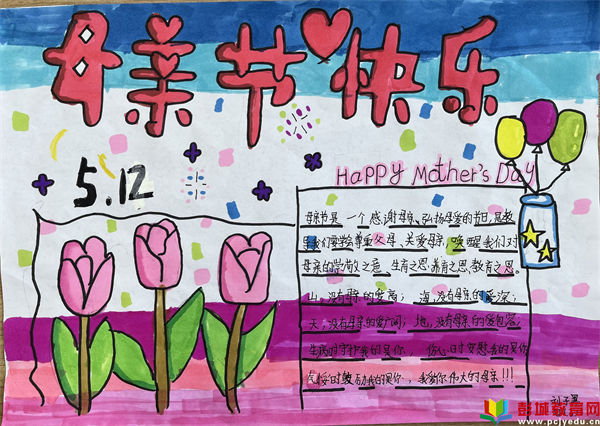 母亲节快乐
5.12
Happy Mother's Day
母亲节是一个感谢母亲、弘扬母爱的节日,是教
导我们要尊重父母、关爱母亲,唤醒我们对
母亲的崇敬之意。生育之恩、养育之恩、教育之恩。
山,没有母亲的爱高;海,没有母亲的爱深;
天,没有母亲的爱广阔;地,没有母亲的爱包容;
生病时守护我的是你,伤心时安慰我的是你
气馁时鼓励我的是你,我爱你伟大的母亲!!!
彭城教育网
www.pcjyedu.cn